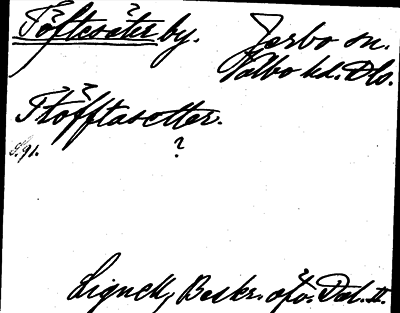 Töftesäter by. Järbo sn.
Valbo hd. Dls.
Töfftasetter.
S. 91. ?
Lignell, Beskr. öfv. Dal. II.